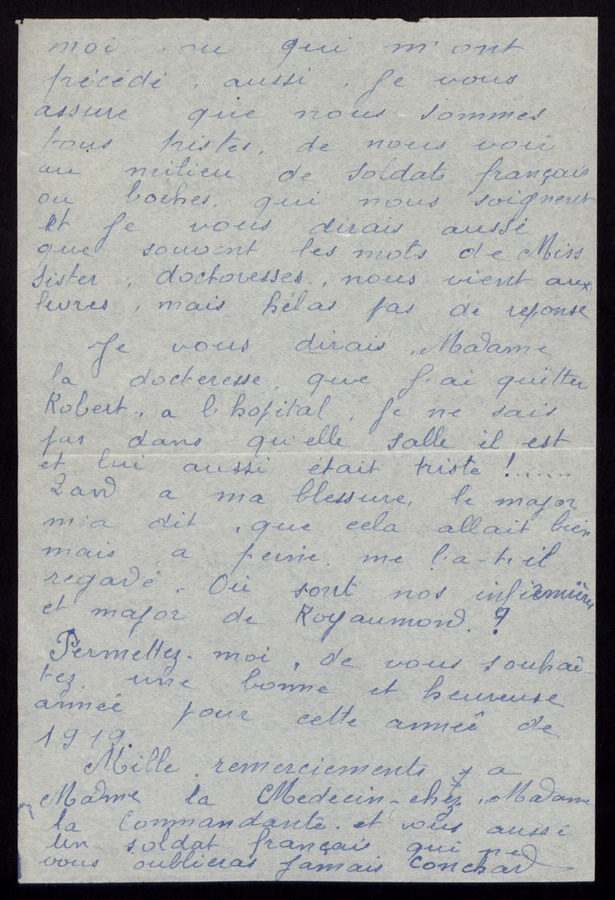 moi qui m'ont
précédé, aussi, Je vous
assure que nous sommes
tous tristes, de nous voir
au milieu de soldats français
ou boches, qui nous soignent
et Je vous dirais aussi
que souvent les mots de Miss
Sister, doctoresses, nous vient aux
levres, mais hélas pas de reponse
Je vous dirais, Madame
la docteresse, que J'ai quitter
Robert, a l'hopital, Je ne sais
pas dans qu'elle salle il est
et lui aussi était triste !......
Zand a ma blessure, le major
m'a dit, que cela allait bien
mais a peine me l'a-t-il
regardé. Où sont nos infirmières
et major de Royaumond ?
Permettez-moi, de vous souhai-
tez une bonne et heureuse
année pour cette année de
1919.
Mille remerciements, a
Madme la Medecin-chef, Madame
la Commandante et vous aussi
Un soldat français qui ne
vous oublieras Jamais Conchard